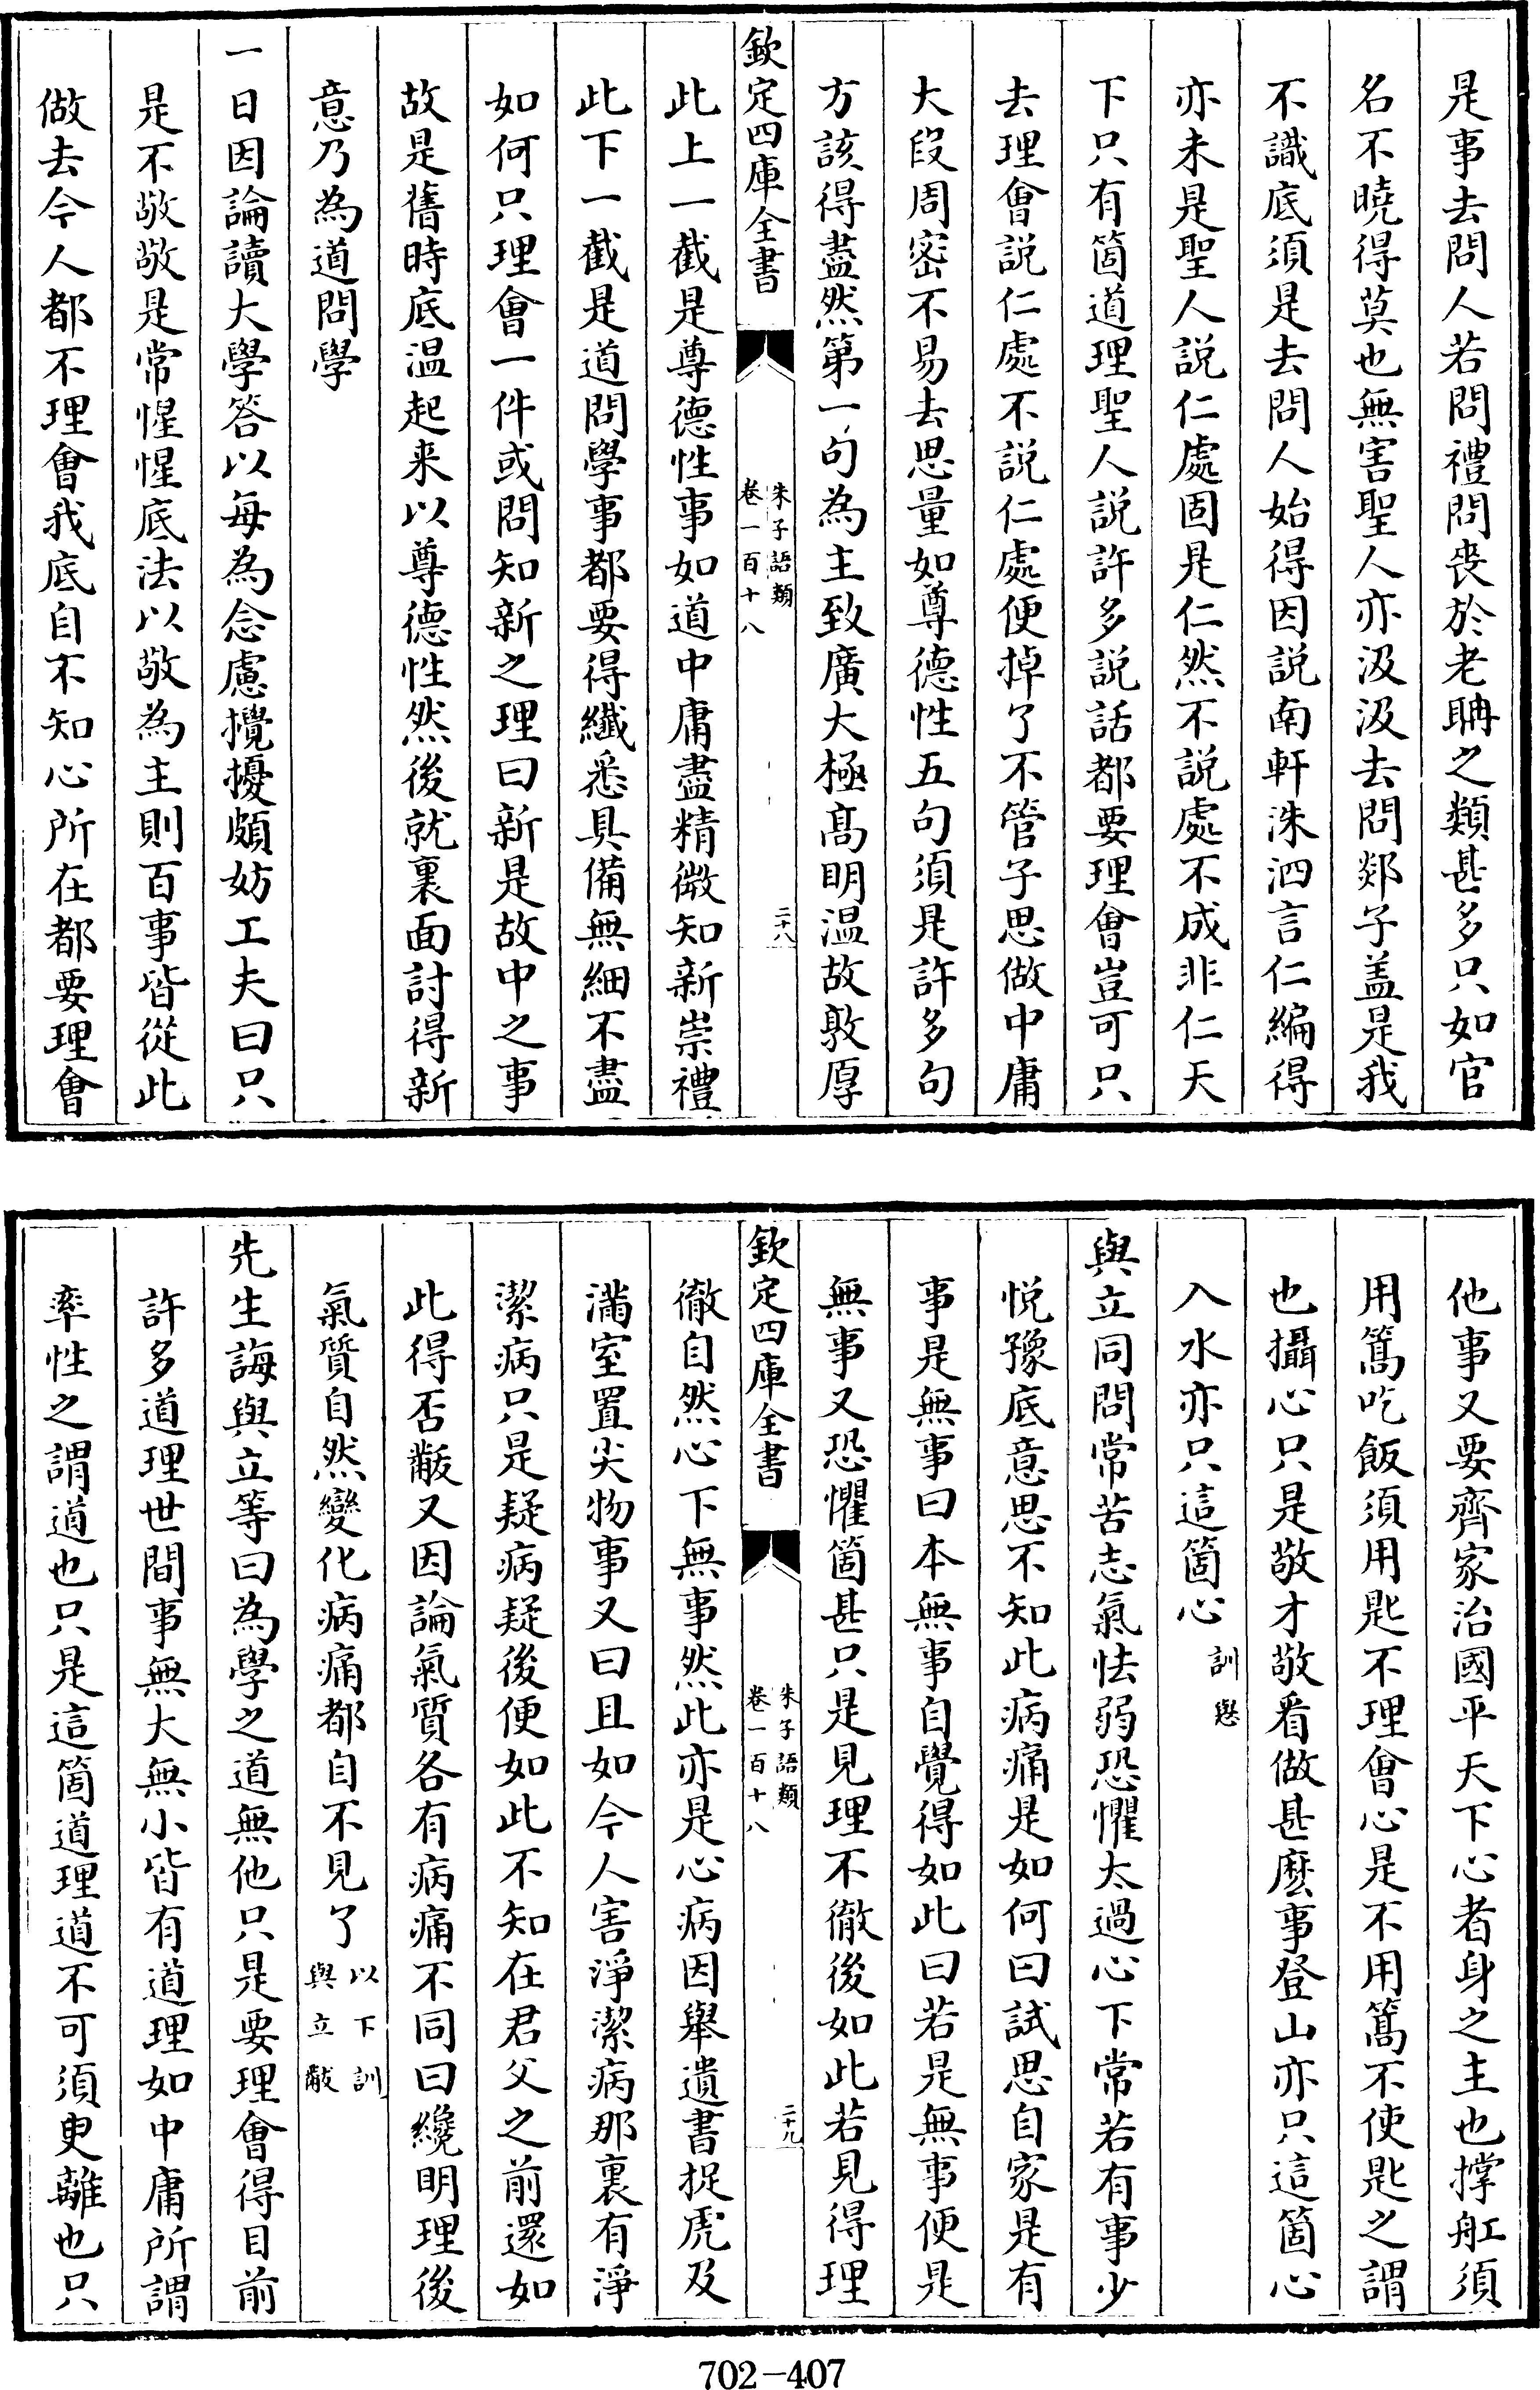 是事去問人若問禮問喪於老聃之類甚多只如官
名不曉得莫也無害聖人亦汲汲去問郯子盖是我
不識底須是去問人始得因説南軒洙泗言仁編得
亦未是聖人説仁處固是仁然不説處不成非仁天
下只有箇道理聖人説許多説話都要理會豈可只
去理會説仁處不説仁處便掉了不管子思做中庸
大段周密不易去思量如尊德性五句須是許多句
方該得盡然第一句為主致廣大極髙明温故敦厚
欽定四庫全書
朱子語類
卷一百十八
二十八
此上一截是尊德性事如道中庸盡精微知新崇禮
此下一截是道問學事都要得纖悉具備無細不盡
如何只理會一件或問知新之理曰新是故中之事
故是舊時底温起来以尊德性然後就裏面討得新
意乃為道問學
一日因論讀大學答以每為念慮攪擾頗妨工夫曰只
是不敬敬是常惺惺底法以敬為主則百事皆從此
做去今人都不理會我底自不知心所在都要理會
他事又要齊家治國平天下心者身之主也撑舡須
用篙吃飯須用匙不理會心是不用篙不使匙之謂
也攝心只是敬才敬看做甚麽事登山亦只這箇心
入水亦只這箇心訓㦛
與立同問常苦志氣怯弱恐懼太過心下常若有事少
悦豫底意思不知此病痛是如何曰試思自家是有
事是無事曰本無事自覺得如此曰若是無事便是
無事又恐懼箇甚只是見理不徹後如此若見得理
欽定四庫全書
朱子語類
卷一百十八
二十九
徹自然心下無事然此亦是心病因舉遺書捉虎及
滿室置尖物事又曰且如今人害淨潔病那裏有淨
潔病只是疑病疑後便如此不知在君父之前還如
此得否黻又因論氣質各有病痛不同曰纔明理後
氣質自然變化病痛都自不見了以下訓與立黻
先生誨與立等曰為學之道無他只是要理會得目前
許多道理世間事無大無小皆有道理如中庸所謂
率性之謂道也只是這箇道理道不可須臾離也只
702-407